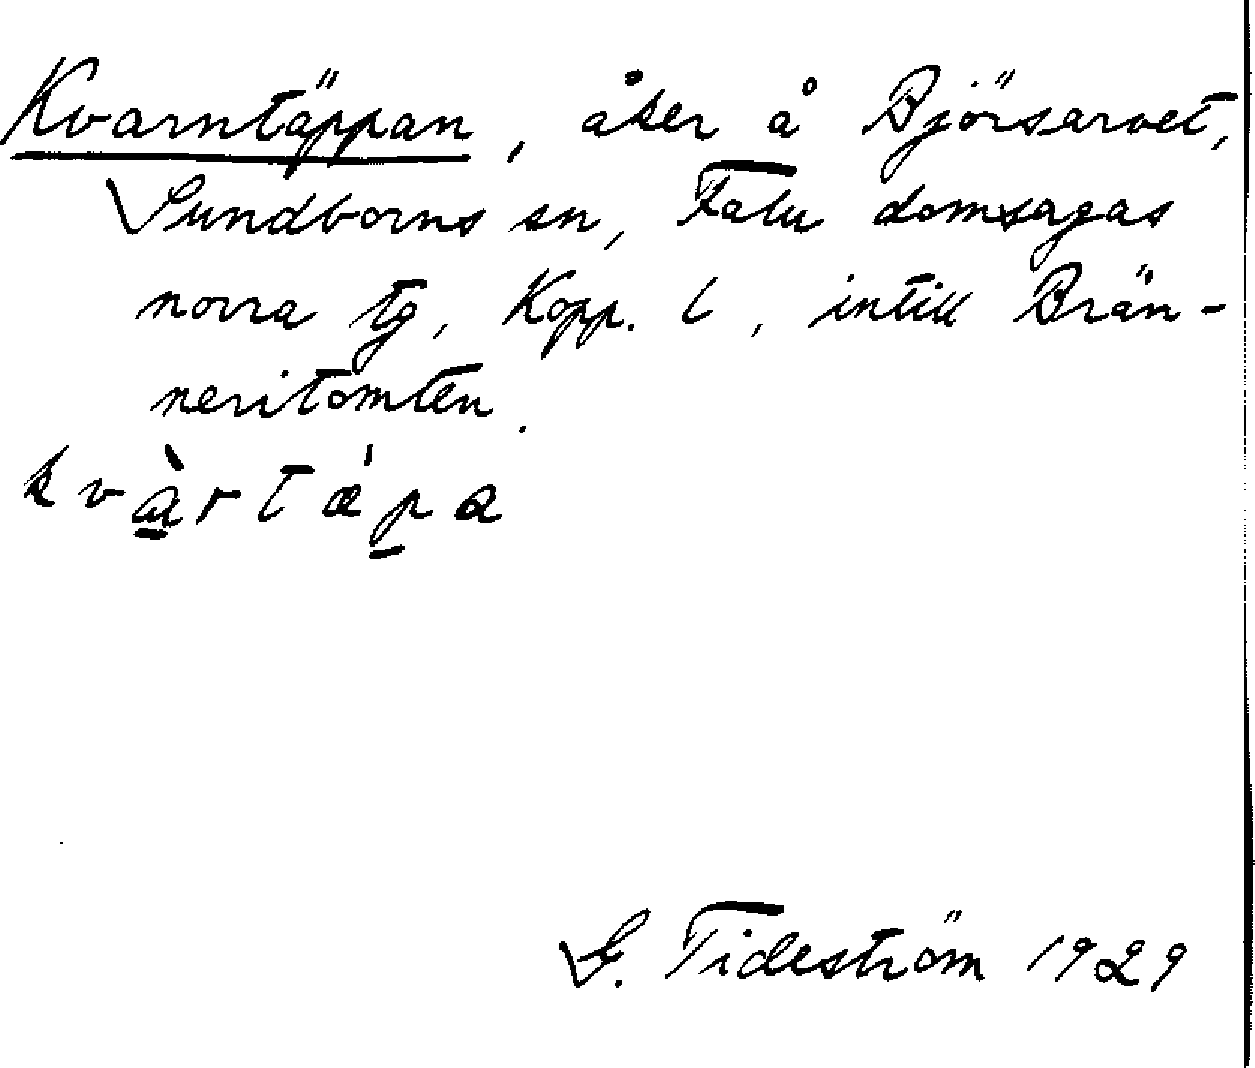 Kvarntäppan, åker å Björsarvet,
Sundborns sn, Falu domsagas
norra tg, Kopp. l, intill Brän-
neritomten.
kvàrtǽpa
G. Tideström 1929